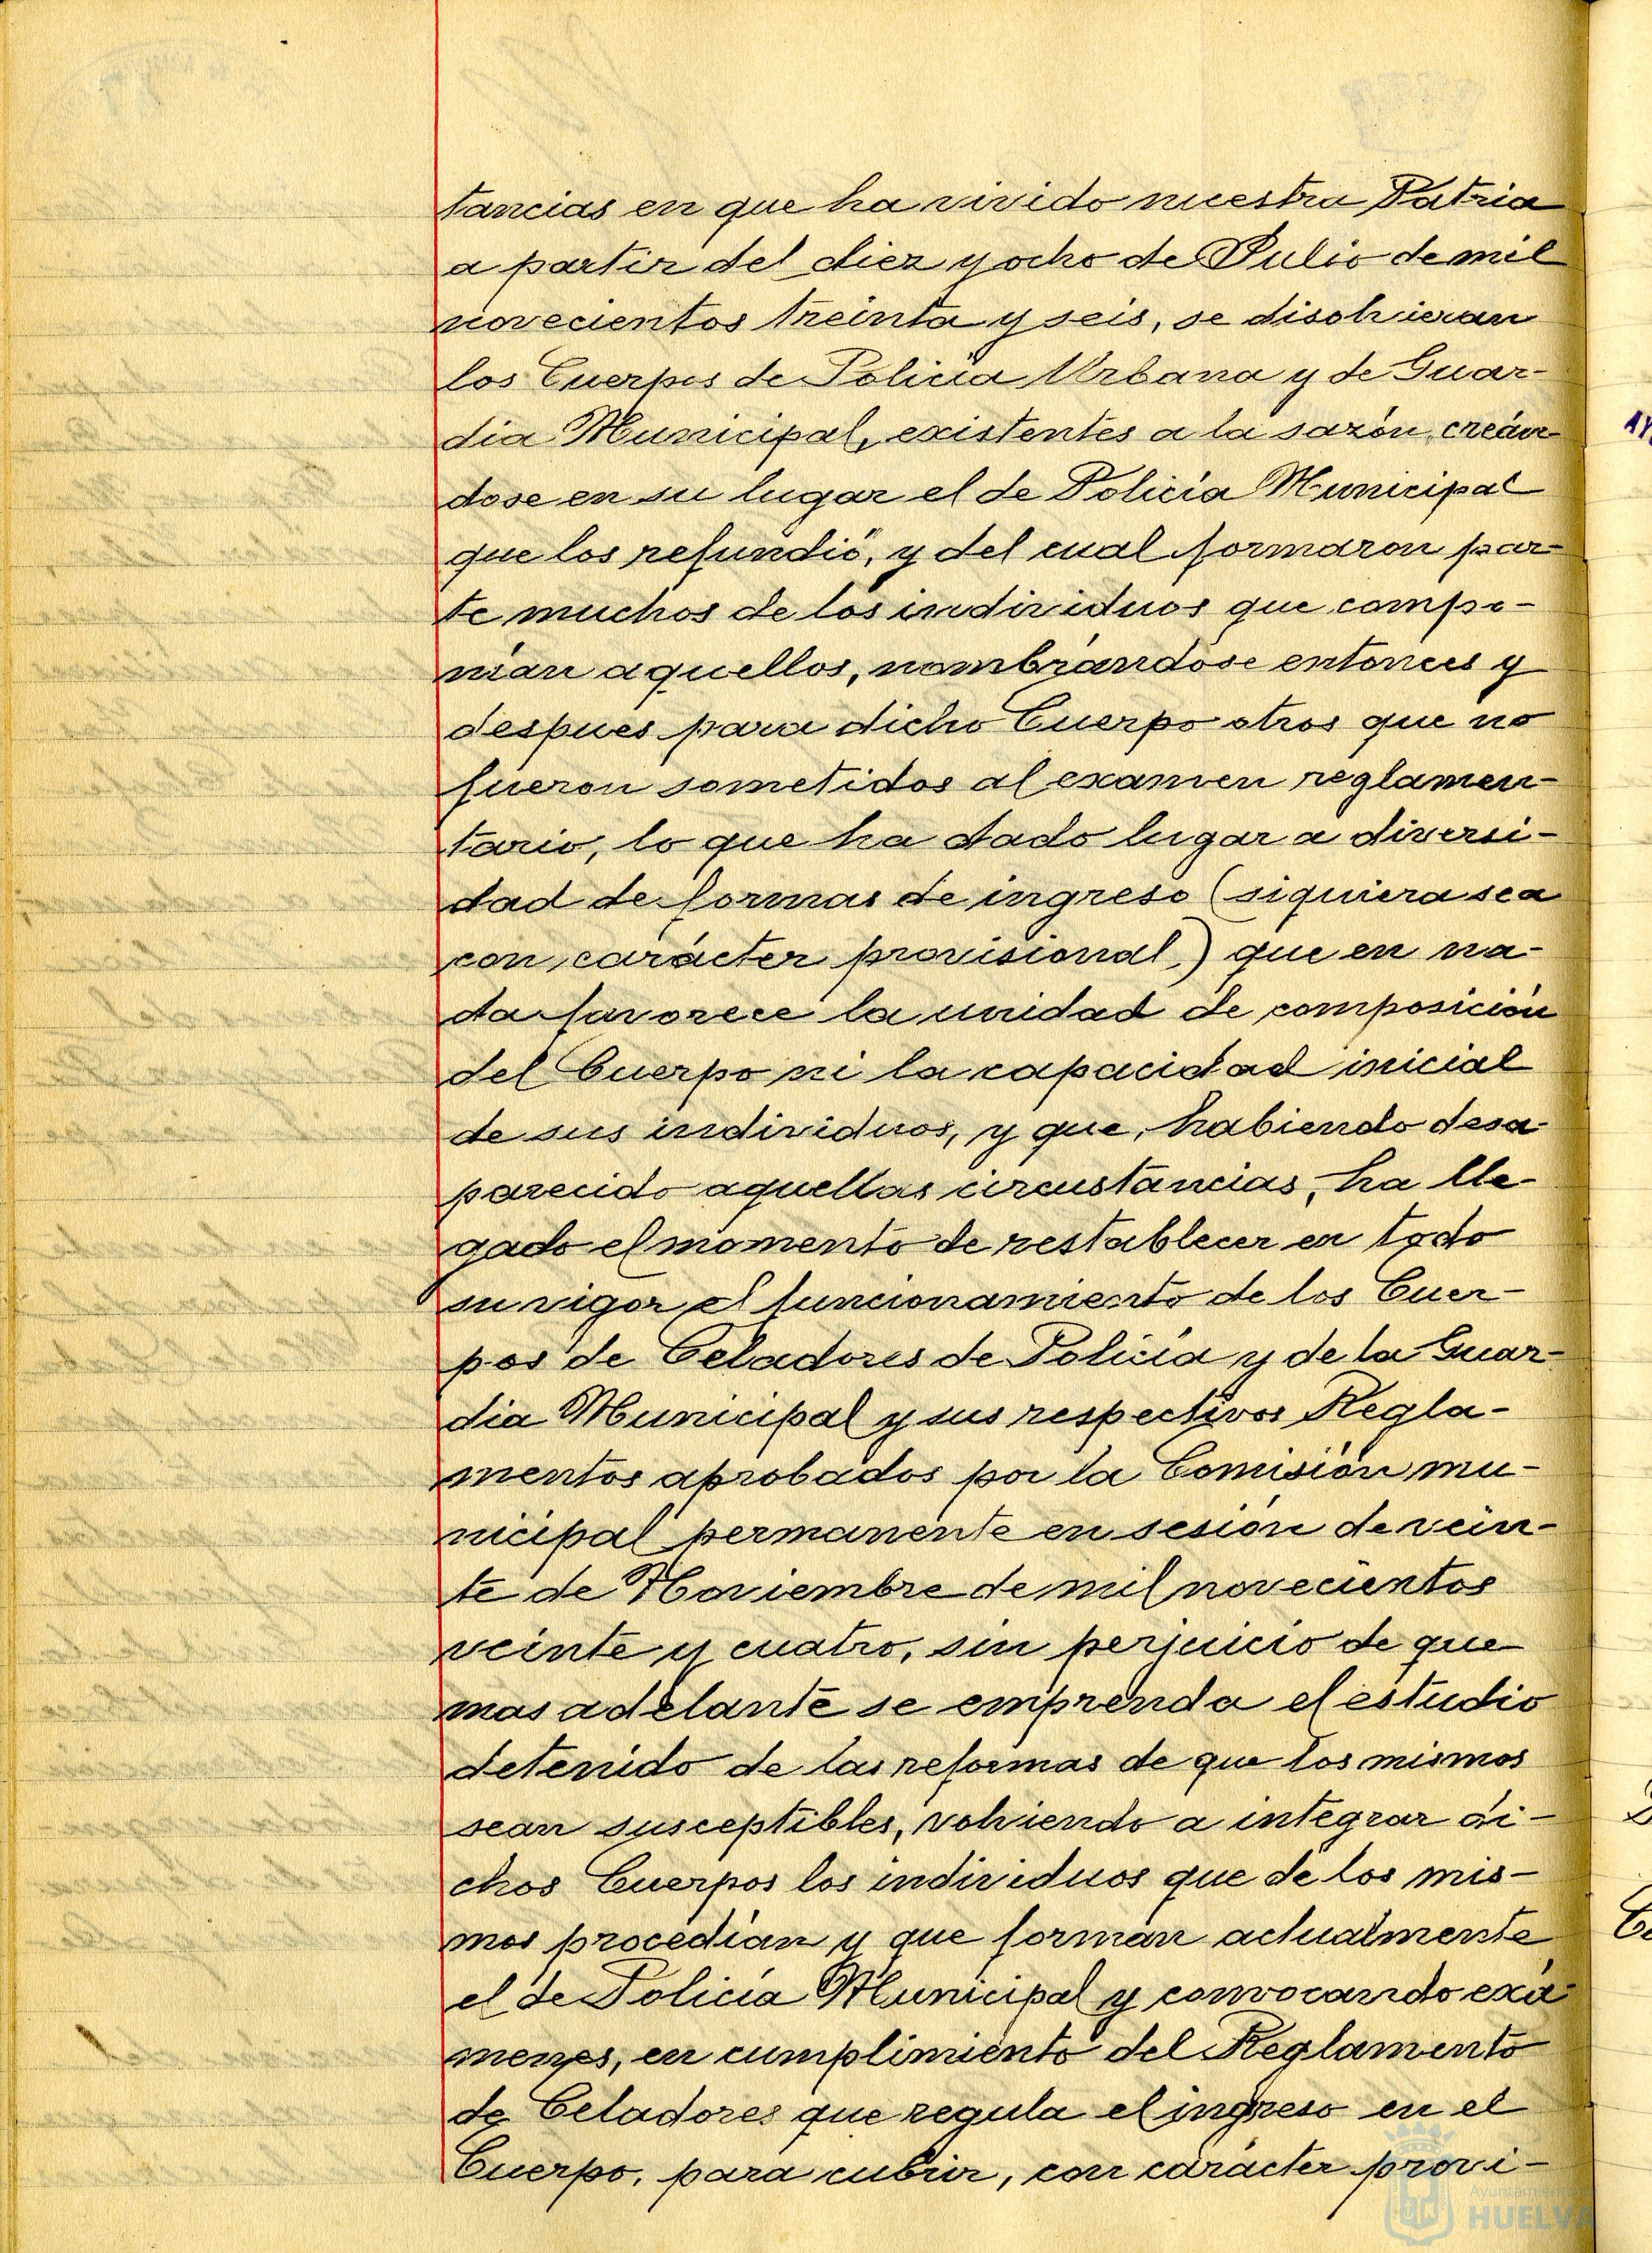 tancias en que ha vivido nuestra Patria
a partir del diez y ocho de Julio de mil
novecientos treinta y seis, se disolvieran
los Cuerpos de Policía Urbana y de Guar-
dia Municipal, existentes a la sazón, creán-
dose en su lugar el de Policía Municipal
que los refundió, y del cual formaron par-
te muchos de los individuos que compo-
nían aquellos, nombrándose entonces y
despues para dicho Cuerpo otros que no
fueron sometidos al examen reglamen-
tario, lo que ha dado lugar a diversi-
dad de formas de ingreso (siquiera sea
con carácter provisional) que en na-
da favorece la unidad de composición
del Cuerpo ni la capacidad inicial
de sus individuos, y que, habiendo desa-
parecido aquellas circustancias, ha lle-
gado el momento de restablecer en todo
su vigor el funcionamiento de los Cuer-
pos de Celadores de Policía y de la Guar-
dia Municipal y sus respectivos Regla-
mentos aprobados por la Comisión mu-
nicipal permanente en sesión de vein-
te de Noviembre de mil novecientos
veinte y cuatro, sin perjuicio de que
mas adelante se emprenda el estudio
detenido de las reformas de que los mismos
sean susceptibles, volviendo a integrar di-
chos Cuerpos los individuos que de los mis-
mos procedían y que forman actualmente
el de Policía Municipal y convocando exá-
menes, en cumplimiento del Reglamento
de Celadores que regula el ingreso en el
Cuerpo, para cubrir, con carácter provi-
Ayuntamiento
HUELVA